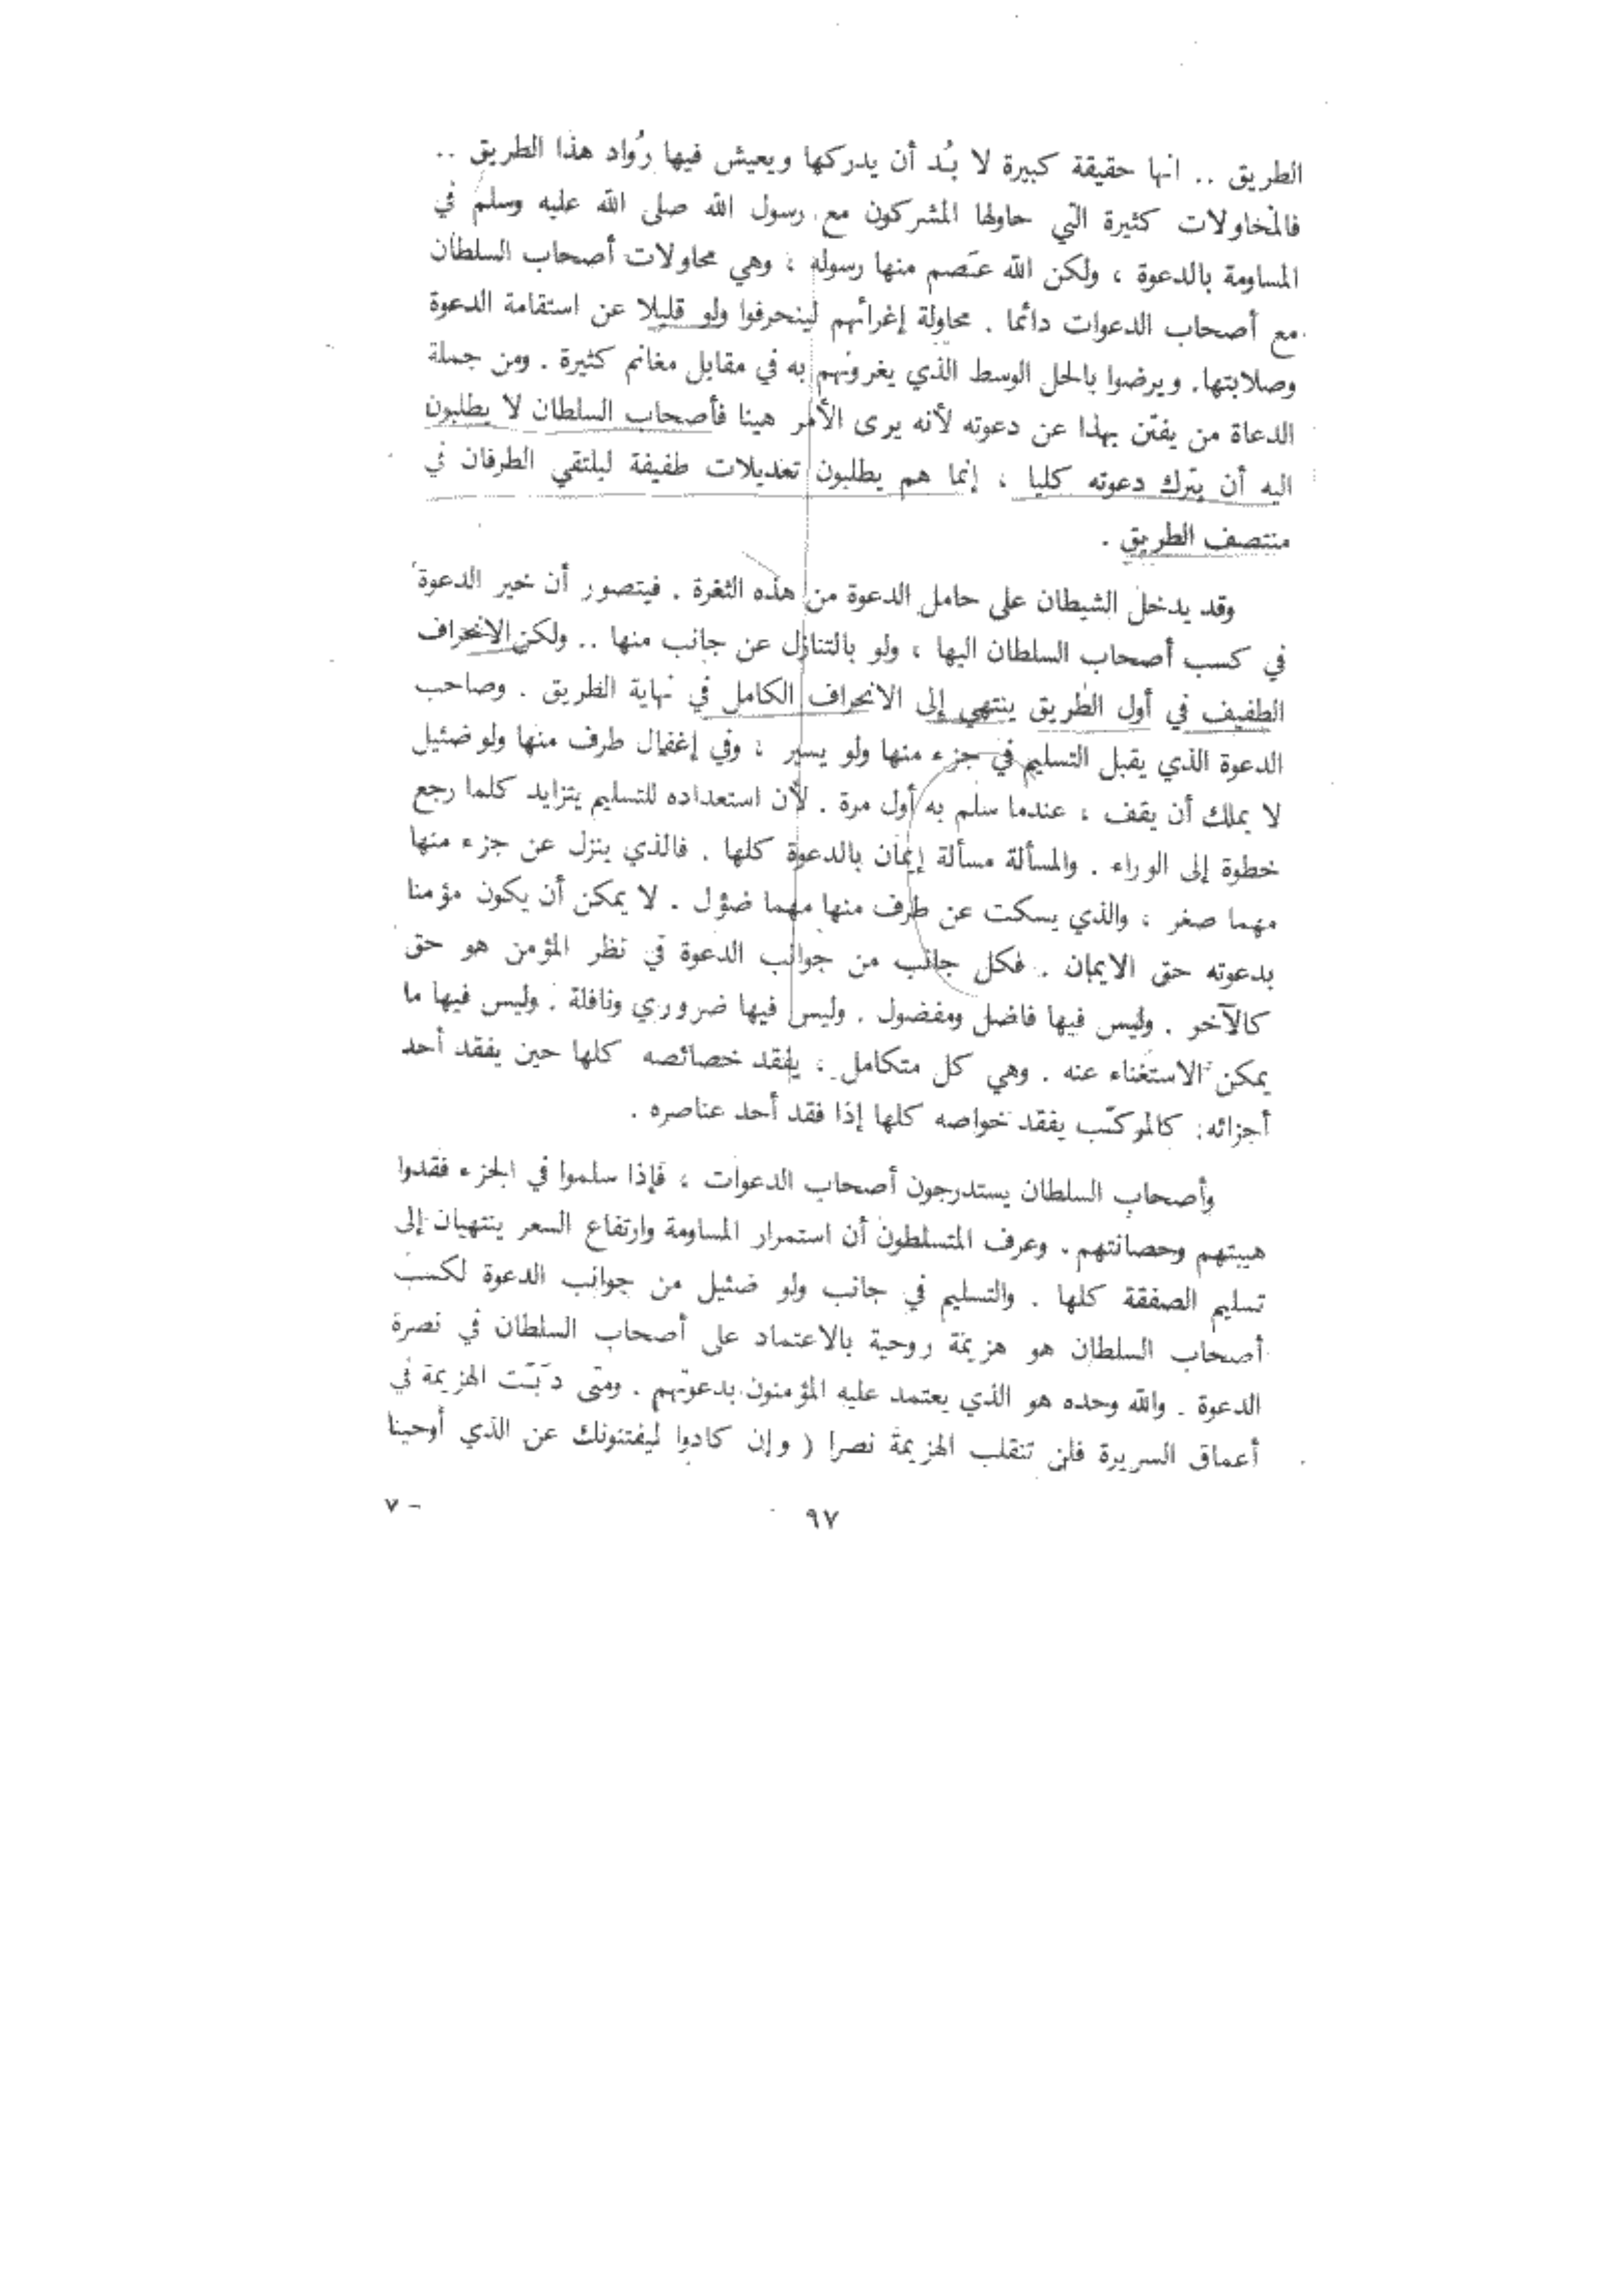 الطريق .. انها حقيقة كبيرة لا بُد أن يدركها ويعيش فيها رُواد هذا الطريق ..
فالمحاولات كثيرة التي حاولها المشركون مع رسول الله صلى الله عليه وسلم في
المساومة بالدعوة ، ولكن الله عَصم منها رسوله ، وهي محاولات أصحاب السلطان
مع أصحاب الدعوات دائما . محاولة إغرائهم لينحرفوا ولو قليلا عن استقامة الدعوة
وصلابتها. ويرضوا بالحل الوسط الذي يغرونهم به في مقابل مغانم كثيرة . ومن جملة
الدعاة من يفتن بهذا عن دعوته لأنه يرى الأمر هينا فأصحاب السلطان لا يطلبون
اليه أن يترك دعوته كليا ، إنما هم يطلبون تعديلات طفيفة ليلتقي الطرفان في
منتصف الطريق .
وقد يدخل الشيطان على حامل الدعوة من هذه الثغرة . فيتصور أن خير الدعوة
في كسب أصحاب السلطان اليها ، ولو بالتنازل عن جانب منها .. ولكن الانحراف
الطفيف في أول الطريق ينتهي إلى الانحراف الكامل في نهاية الطريق . وصاحب
الدعوة الذي يقبل التسليم في جزء منها ولو يسير ، وفي إغفال طرف منها ولو ضئيل
لا يملك أن يقف ، عندما سلم به أول مرة . لأن استعداده للتسليم يتزايد كلما رجع
خطوة إلى الوراء . والمسألة مسألة إيمان بالدعوة كلها . فالذي ينزل عن جزء منها
مهما صغر ، والذي يسكت عن طرف منها مهما ضؤل . لا يمكن أن يكون مؤمنا
بدعوته حق الايمان . فكل جانب من جوانب الدعوة في نظر المؤمن هو حق
كالآخر . وليس فيها فاضل ومفضول . وليس فيها ضروري ونافلة . وليس فيها ما
يمكن الاستغناء عنه . وهي كل متكامل ، يفقد خصائصه كلها حين يفقد أحد
أجزائه: كالمركّب يفقد خواصه كلها إذا فقد أحد عناصره .
وأصحاب السلطان يستدرجون أصحاب الدعوات ، فإذا سلموا في الجزء فقدوا
هيبتهم وحصانتهم. وعرف المتسلطون أن استمرار المساومة وارتفاع السعر ينتهيان إلى
تسليم الصفقة كلها . والتسليم في جانب ولو ضئيل من جوانب الدعوة لكسب
أصحاب السلطان هو هزيمة روحية بالاعتماد على أصحاب السلطان في نصرة
الدعوة . والله وحده هو الذي يعتمد عليه المؤمنون بدعوتهم . ومتى دَبَّت الهزيمة في
أعماق السريرة فلن تنقلب الهزيمة نصرا ( وإن كادوا ليفتنونك عن الذي أوحينا
٩٧
٧ -